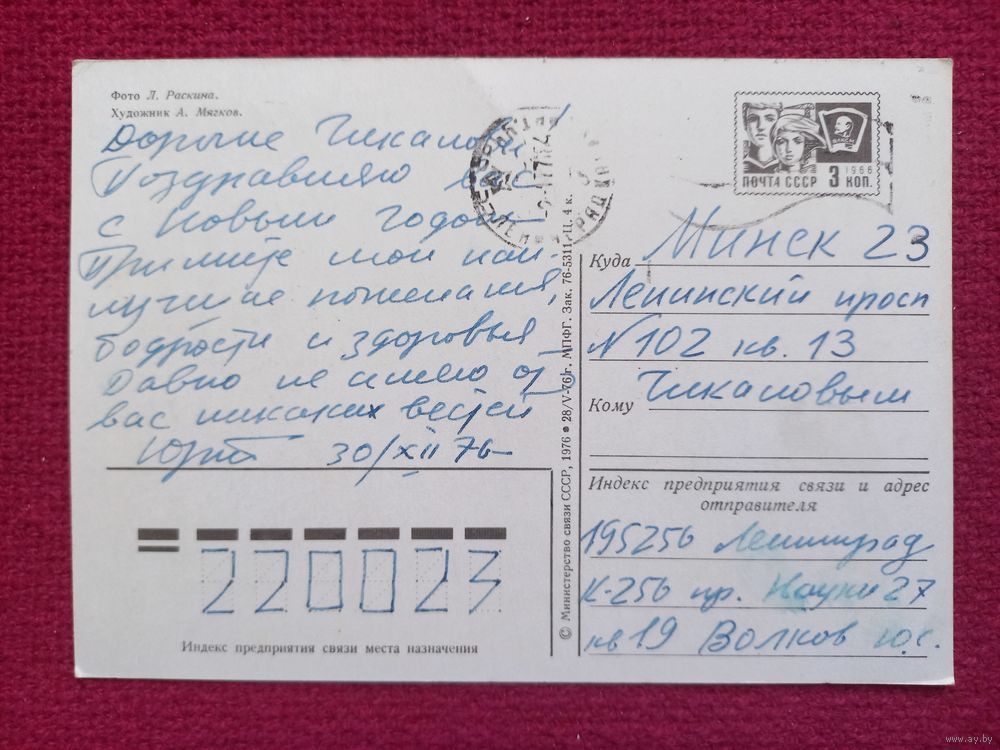 Фото Л. Раскина.
Художник А. Мягков.
Дорогие Чикаловы!
Поздравляю вас
с Новым годом
Примите мои наи-
лучшие пожелания,
бодрости и здоровья
Давно не имею от
вас никаких вестей
30/XII 76
ПОЧТА СССР 3 КОП.
1966
Куда Минск 23
Ленинский просп
N 102 кв. 13
Кому Чикаловым
Индекс предприятия связи и адрес
отправителя
195256 Ленинград
К-256 пр. Науки 27
кв 19 Волков Ю.С.
© Министерство связи СССР, 1976 • 28/V-76 г. МПФГ. Зак. 76-5311. Ц. 4 к.
220023
Индекс предприятия связи места назначения
www.ay.by